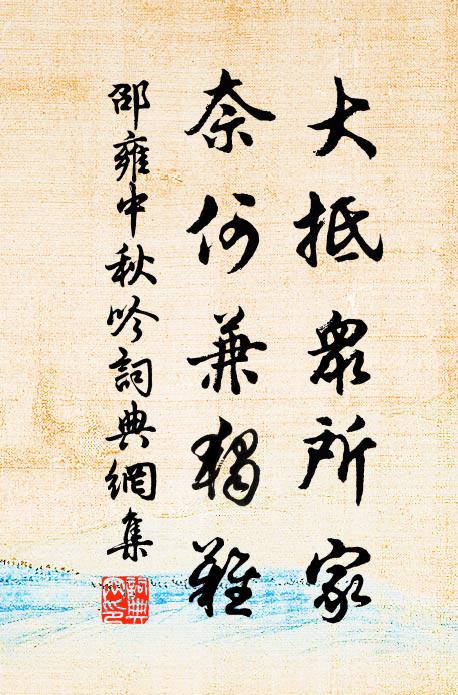 大抵眾所家
奈何兼獨難
邵雍中秋吟詞典網集